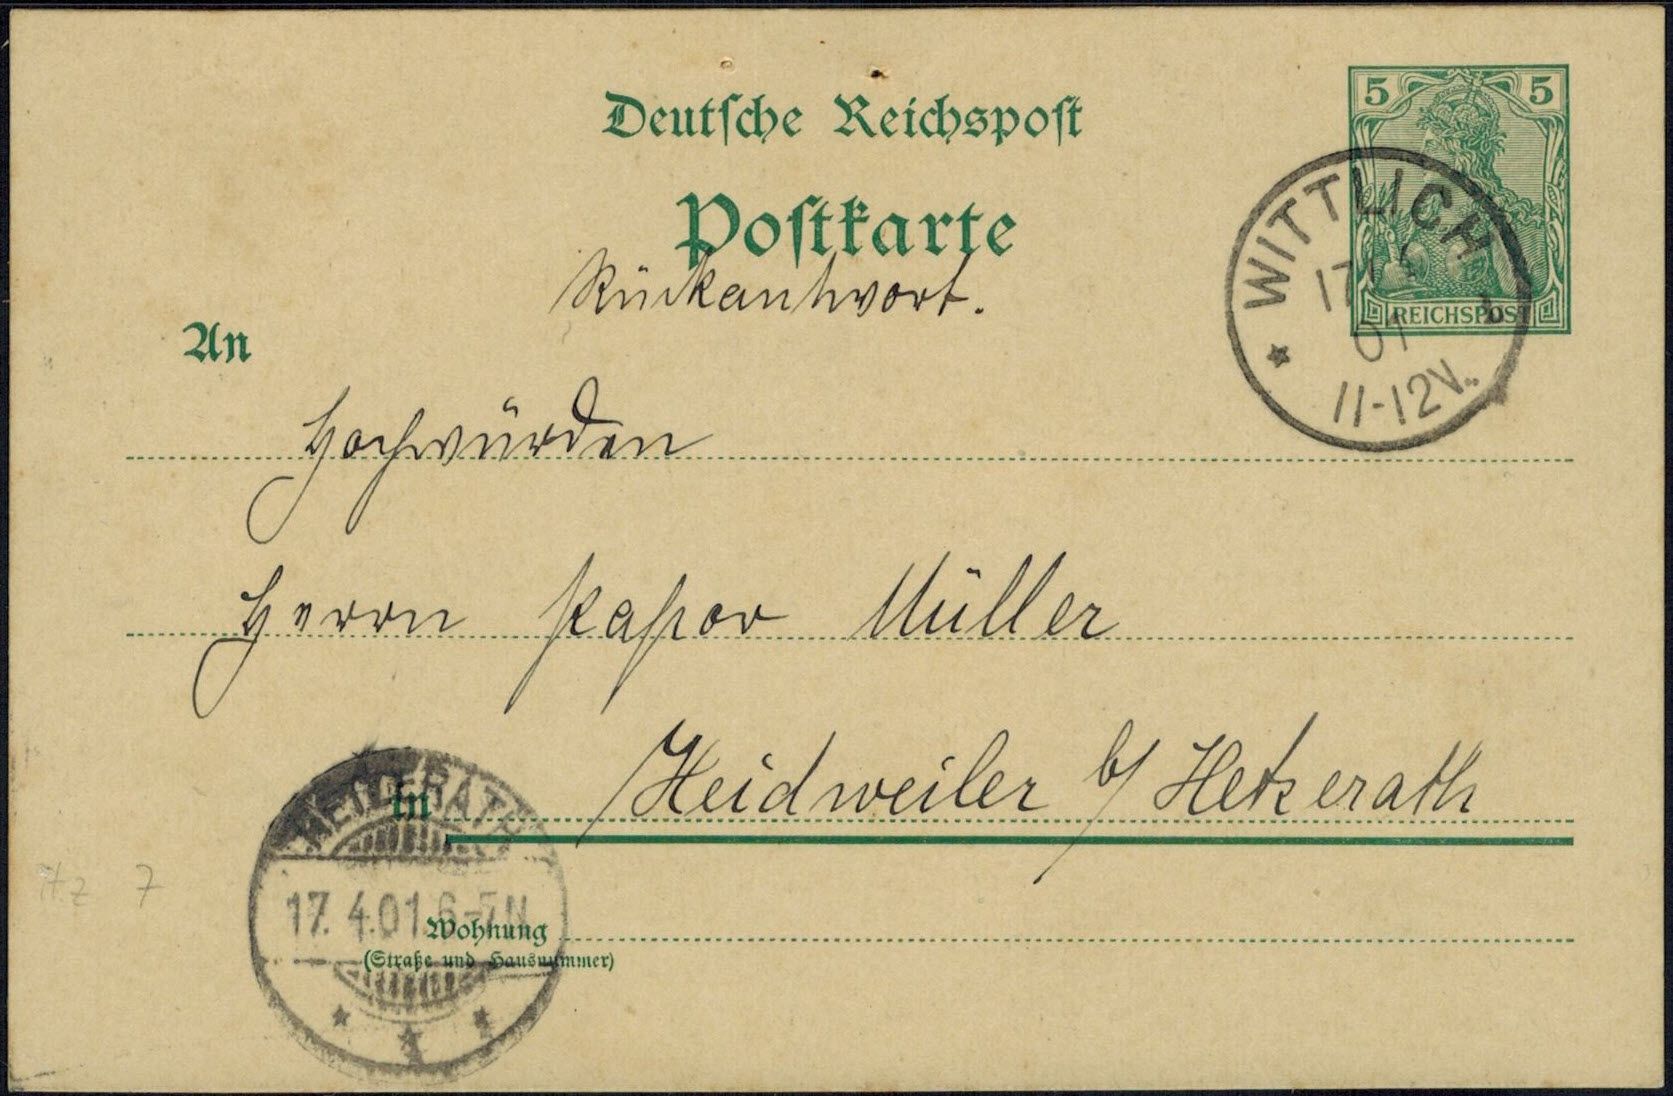 Deutsche Reichspost
5 5
Postkarte
REICHSPOST
WITTLICH
17
01
11-12V.
Rückantwort.
An
Hochwürden
Herrn Pastor Müller
in Heidweiler b/ Hetzerath
HETZERATH
17. 4.01. 6-7N
Wohnung
(Straße und Hausnummer)
7